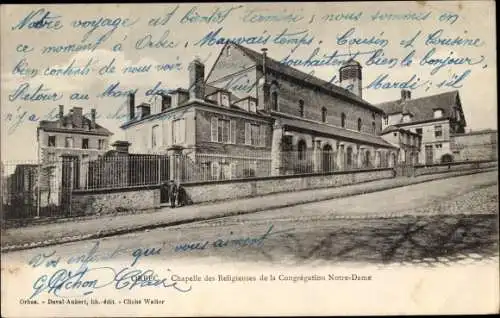 Notre voyage est bientôt terminé, nous sommes en
ce moment à Orbec, Mauvais temps. Cousin et Cousine
Bien contents de nous voir souhaitent bien le bonjour,
Retour au Mans Mardi,
vos enfants qui vous aiment
ORBEC. — Chapelle des Religieuses de la Congrégation Notre-Dame
Orbec. - Daval-Aubert, lib.-édit. - Cliché Walter